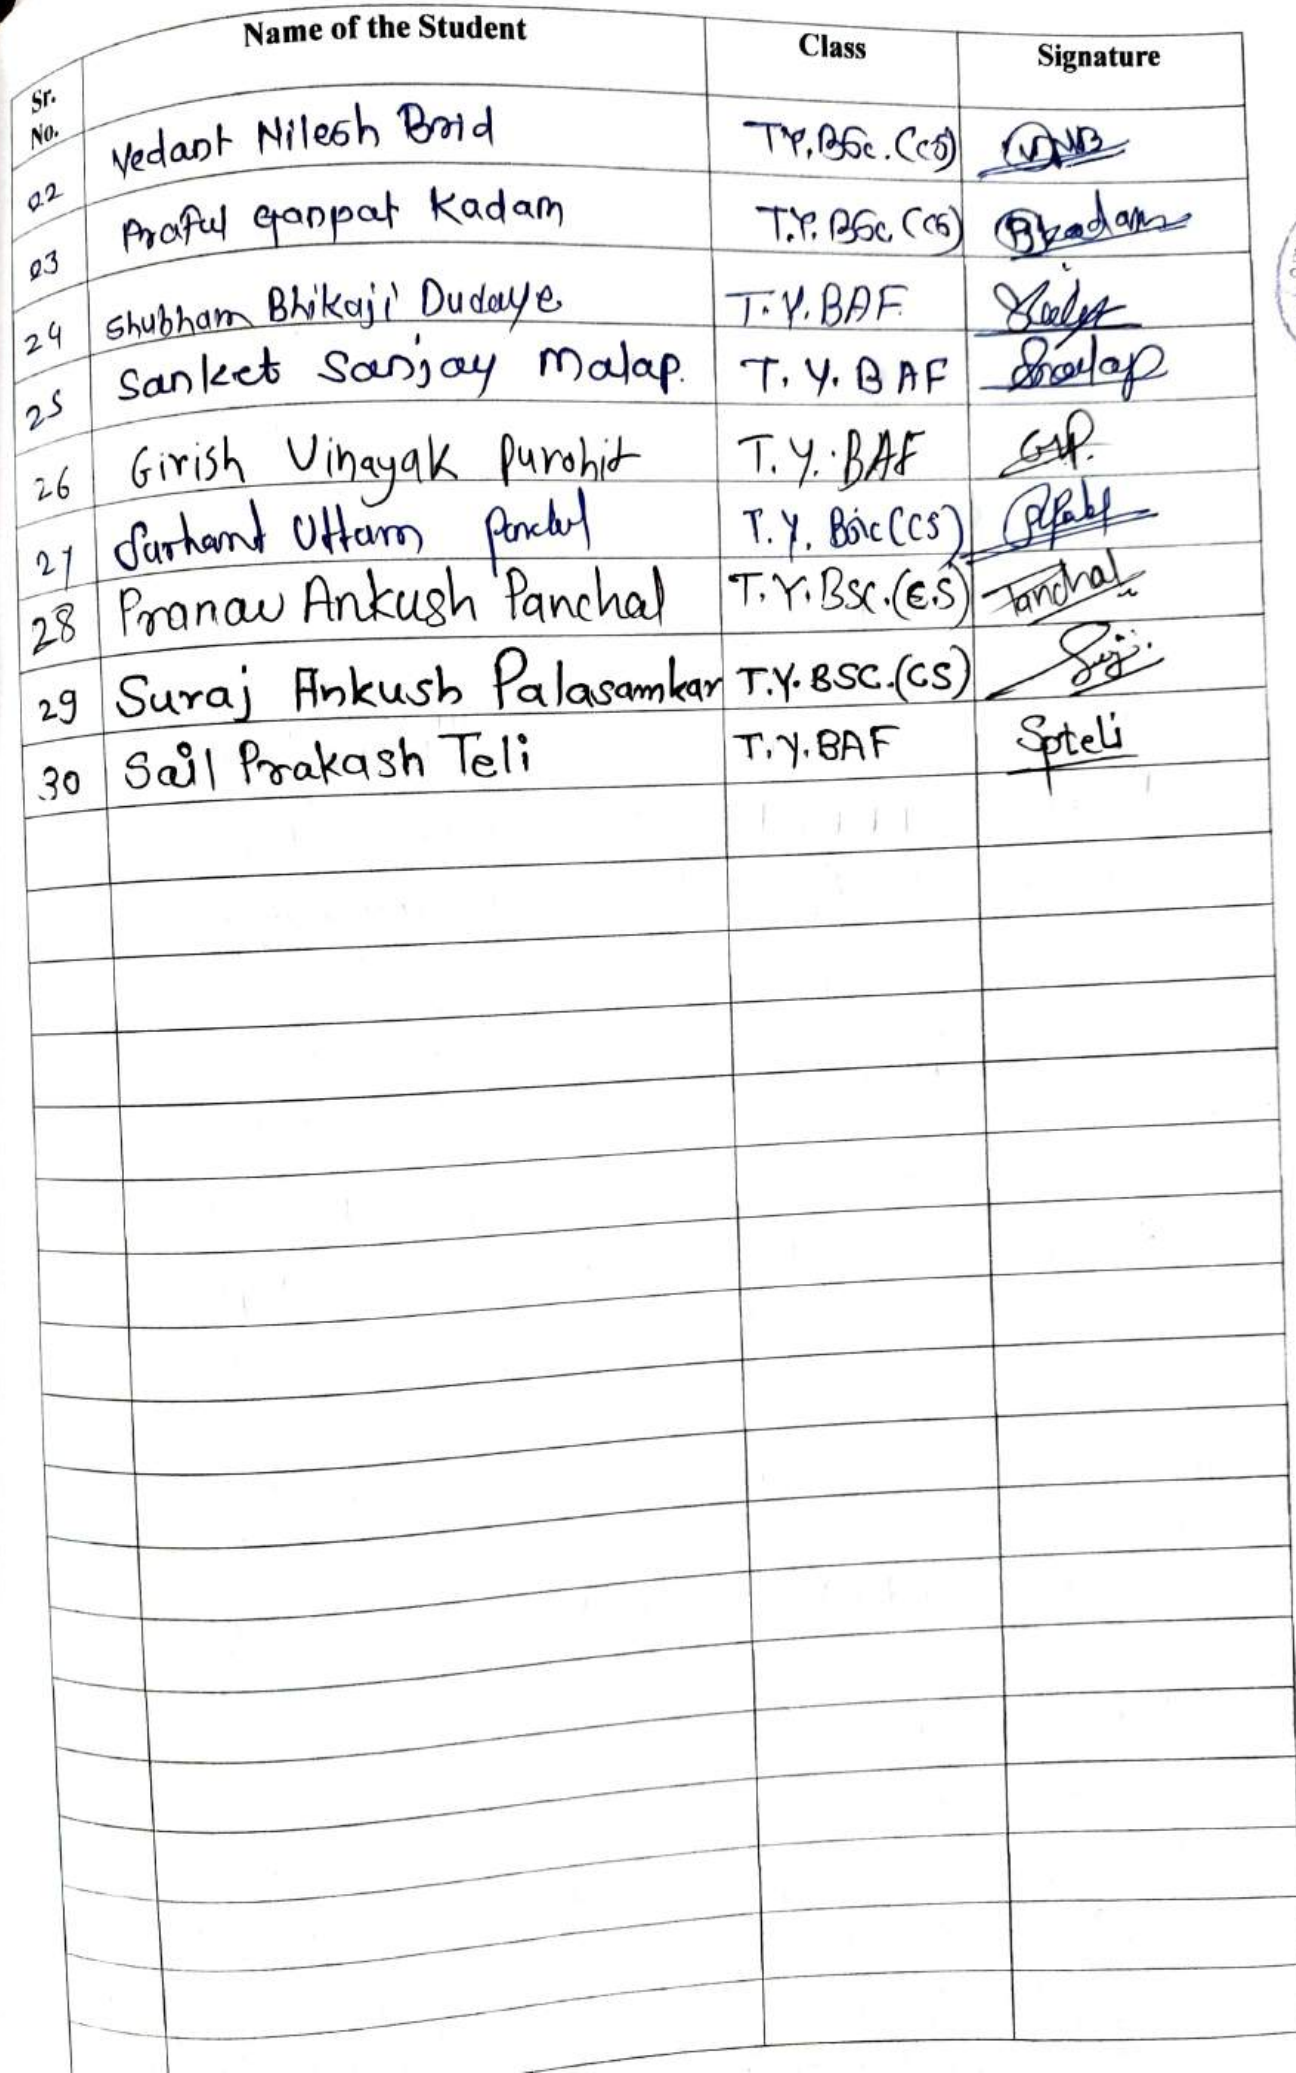 Sr. No. Name of the Student Class Signature
22 Vedant Nilesh Baid T.Y.BSc.(CS) VNB
23 Praful Ganpat Kadam T.Y.BSc.(CS) Pkadam
24 Shubham Bhikaji Dudaye T.Y.BAF
25 Sanket Sanjay Malap. T.Y.BAF Smalap
26 Girish Vinayak Purohit T.Y.BAF GVP.
27 Uttam T.Y. Bsc(CS)
28 Pranav Ankush Panchal T.Y.BSC.(C.S) Panchal
29 Suraj Ankush Palasamkar T.Y.BSC.(CS)
30 Sail Prakash Teli T.Y.BAF Spteli